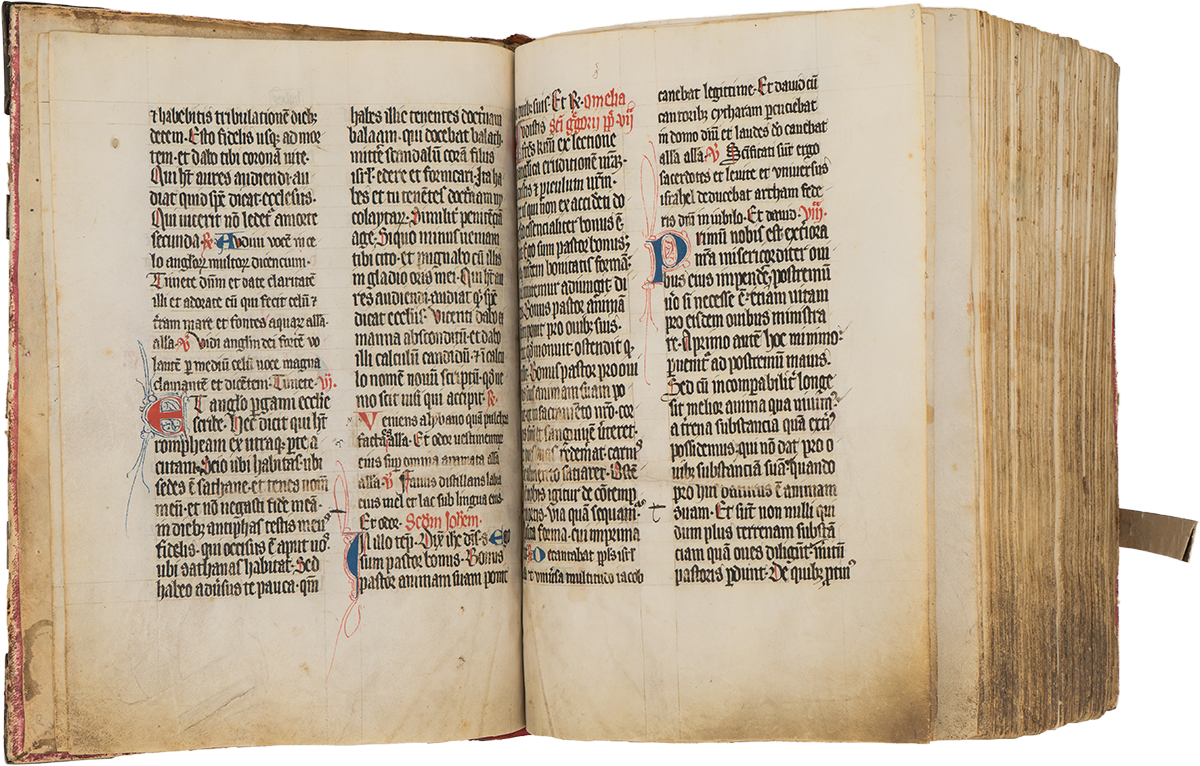 ⁊ habebitis tribulationē dieb;
decem. Esto fidelis usq; ad mor
tem. et dabo tibi coronā uite.
Qui hꝫ aures audiendi au
diat quid sp̄s dicat ecclesiis.
Qui uicerit nō ledet͛ a morte
secunda. ℟. Audiui uocē in ce
lo angl'or̄ multor̄ dicencium.
Timete dn̄m et date claritatē
illi et adorate eū qui fecit celū ⁊
t͛ram mare et fontes aquar̄ all'a.
all'a. ℣. Vidi angl'm dei fortē vo
lantē p̄ mediū celū uoce magna
clamantē et dicētem. Timete. vj.
Et angl'o p̄gami ecclīe
scribe. Hec dicit qui hꝫ
rompheam ex utraq; p̄te a
cutam. Scio ubi habitas. ubi
sedes ē sathane. et tenes nom̄
meū. et nō negasti fidē meā.
in dieb; antiphas testis meꝰ
fidelis. qui occisus ē aput uos.
ubi sathanas habitat. Sed
habeo aduersus te pauca. qm̄
habes illic tenentes doct'nam
balaam. qui docebat balach.
mittē scandalū corā filiis
isrl'. edere et fornicari. Ita ha
bes et tu tenētes doct'nam ny
colaytar̄. Similit͛ penitētiā
age. Si quo minus ueniam
tibi cito. et pugnabo cū illis
in gladio oris mei. Qui hꝫ au
res audiendi. audiat qͥ sp̄s
dicat ecclīis. Vicenti dabo
manna absconditū. et dabo
illi calculū candidū. ⁊ ī calcu
lo nomē nouū scriptū. qd̄ ne
mo scit nisi qui accipit. ℟.
Veniens a lybano quā pulchra
facta ē all'a. Et odor uestimentor̄
eius sup̄ omnia aromata all'a
all'a. ℣. Fauus distillans labia
eius mel et lac sub lingua eiꝰ.
Et odor. Scd'm Joh'em.
In illo tēp̄. Dix̄ ihc dis's. s. Ego
sum pastor bonus. Bonus
pastor animam suam ponit
ouib; suis. Et R. Omelia
sc̄i g̓gorii pp̄. vij
fr̄es km̄i ex lectione
eruditionē ur̄āz.
⁊ p̄iculum ur̄m.
qui non ex accidēti do
essencialiter bonus ē
Ego sum pastor bonus.
bonitatis formā.
adiungit di
Bonus pastor animā
ponit pro ouib; suis.
monuit. ostendit qͥ
Bonus pastor pro oui
animam suam po
sanguinē ūteret.
redem̄at. carnꝭ
satiaret. Oste
nobis igitur de cōtemp
mortis. via quā sequamꝰ
forma. cui imprima
Decantabat pp̄ls isrl'
et uniūsa multitudo iacob
canebat legittime. Et dauid cū
cantorib; cytharam percuciebat
in domo dn̄i et laudes dō canebat
all'a all'a. ℣. Sc̄ificati sūt ergo
sacerdotes et leuite et vniuersus
israhel deducebat archam fede
ris dn̄i in iubilo. Et dauid. viij.
Primū nobis est ext̓iora
nr̄a misericorditer oui
bus eius impendē. postremū
u̓o si necesse ē. etiam uitam
pro eisdem ouibus ministra
re. A primo autē hoc minimo
p̄uenit͛ ad postremū maius.
Sed cū incomparabilit̓ longe
sit melior anima qua uiuimꝰ
a terrena substancia quā ext̓iꝰ
possidemus. qui nō dat pro o
uib; substanciā suā. quando
pro hiis daturus ē animam
suam. Et sūt non nulli qui
dum plus terrenam substā
ciam quā oues diligūt. mīitū
pastoris p̄dunt. De quib; p̄tinꝰ